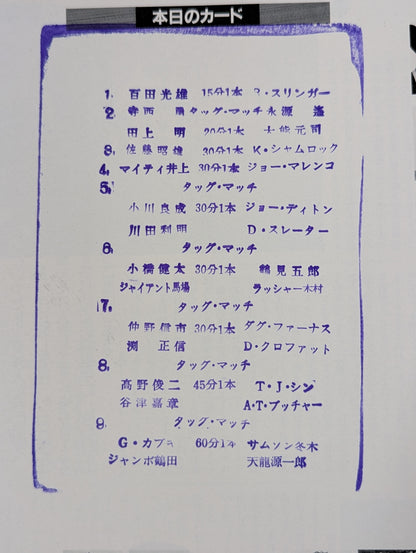 本日のカード
1. 百田光雄 15分1本 R・スリンガー
2. 寺西 勇 タッグ・マッチ 永源 遙
田上 明 20分1本 大熊元司
3. 佐藤昭雄 30分1本 K・シャムロック
4. マイティ井上 30分1本 ジョー・マレンコ
5. タッグ・マッチ
小川良成 30分1本 ジョー・ディトン
川田利明 D・スレーター
6. タッグ・マッチ
小橋健太 30分1本 鶴見五郎
ジャイアント馬場 ラッシャー木村
7. タッグ・マッチ
仲野信市 30分1本 ダグ・ファーナス
渕 正信 D・クロファット
8. タッグ・マッチ
高野俊二 45分1本 T・J・シン
谷津嘉章 A・T・ブッチャー
9. タッグ・マッチ
G・カブキ 60分1本 サムソン冬木
ジャンボ鶴田 天龍源一郎